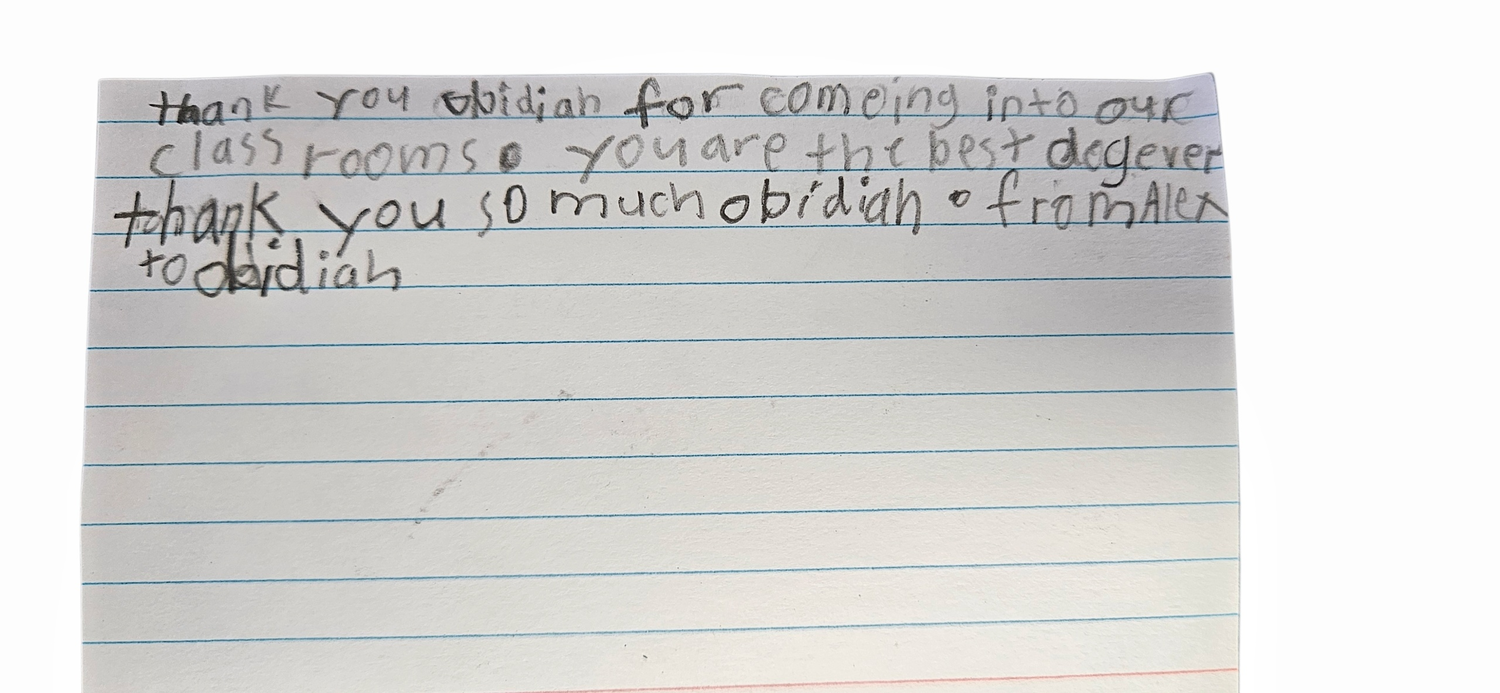 thank you obidiah for comeing into our
class rooms. you are the best dog ever
thank you so much obidiah. from Alex
to obidiah